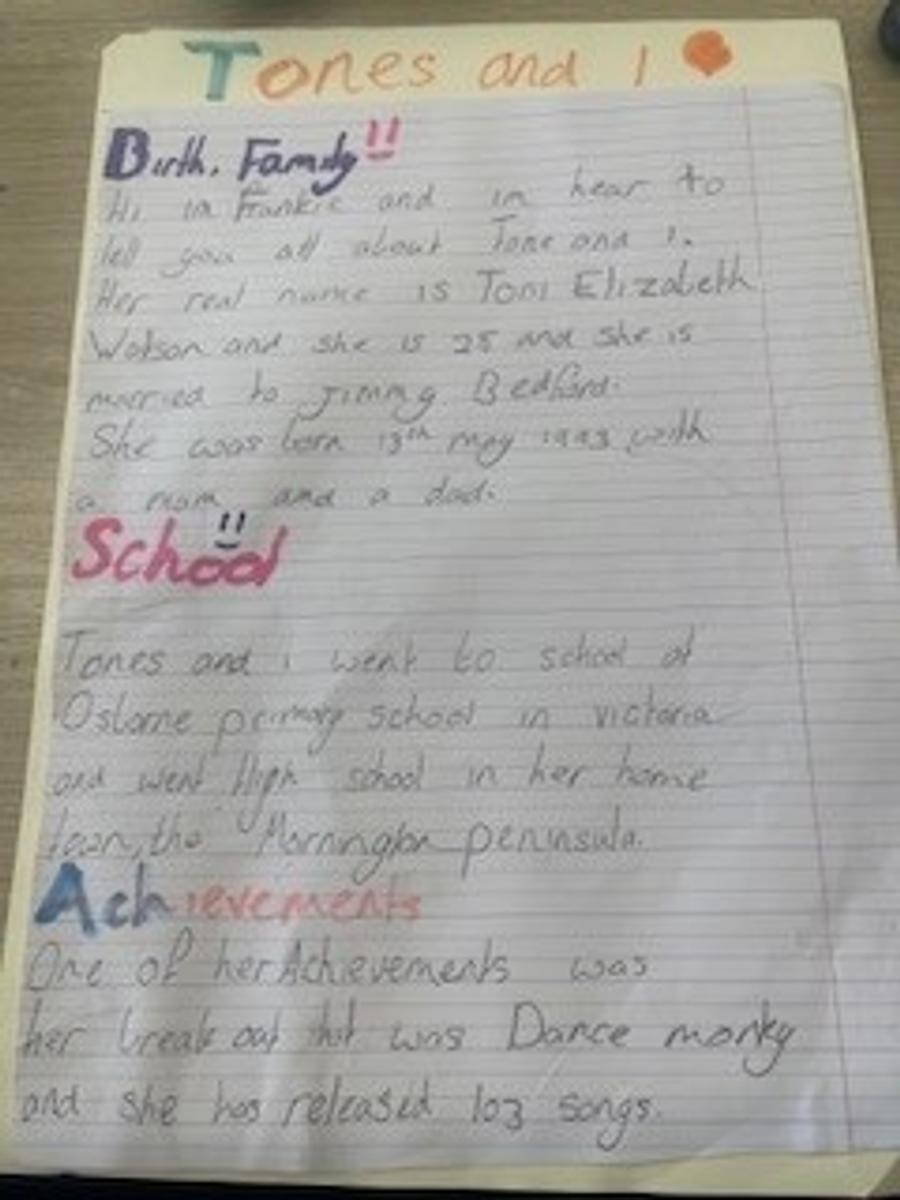 Tones and I
Birth. Family!!
Hi im Frankie and im hear to
tell you all about Tone and I.
Her real name is Toni Elizabeth
Watson and she is 25 and she is
married to Jimmy Bedford.
She was born 13th may 1993 with
a mom and a dad.
School
Tones and i went to school at
Osborne primary school in victoria
and went High school in her home
town, the Mornington peninsula.
Achievements
One of her Achievements was
her break out hit was Dance monky
and she has released 103 songs.